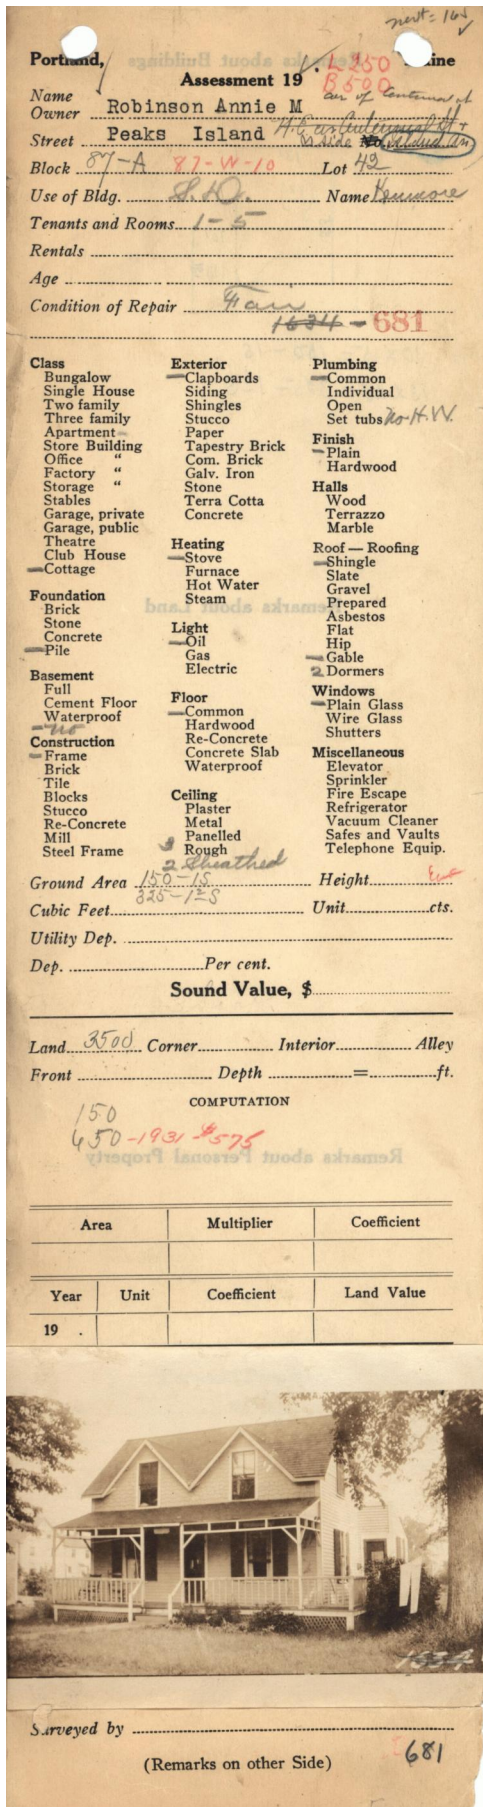 Portland, Maine
Assessment 19
L250
B500
Name
Owner Robinson Annie M
Street Peaks Island
Block 87-A 87-W-10 Lot 42
Use of Bldg. S.D. Name Kenmore
Tenants and Rooms 1-5
Rentals
Age
Condition of Repair Fair
1634 - 681
Class
Bungalow
Single House
Two family
Three family
Apartment
Store Building
Office "
Factory "
Storage "
Stables
Garage, private
Garage, public
Theatre
Club House
Cottage
Foundation
Brick
Stone
Concrete
Pile
Basement
Full
Cement Floor
Waterproof
no
Construction
Frame
Brick
Tile
Blocks
Stucco
Re-Concrete
Mill
Steel Frame
Exterior
Clapboards
Siding
Shingles
Stucco
Paper
Tapestry Brick
Com. Brick
Galv. Iron
Stone
Terra Cotta
Concrete
Heating
Stove
Furnace
Hot Water
Steam
Light
Oil
Gas
Electric
Floor
Common
Hardwood
Re-Concrete
Concrete Slab
Waterproof
Ceiling
Plaster
Metal
Panelled
3 Rough
2 Sheathed
Plumbing
Common
Individual
Open
Set tubs No H.W.
Finish
Plain
Hardwood
Halls
Wood
Terrazzo
Marble
Roof — Roofing
Shingle
Slate
Gravel
Prepared
Asbestos
Flat
Hip
Gable
2 Dormers
Windows
Plain Glass
Wire Glass
Shutters
Miscellaneous
Elevator
Sprinkler
Fire Escape
Refrigerator
Vacuum Cleaner
Safes and Vaults
Telephone Equip.
Ground Area 150-1S Height
325-1½S
Cubic Feet Unit cts.
Utility Dep.
Dep. Per cent.
Sound Value, $
Land 3500 Corner Interior Alley
Front Depth = ft.
COMPUTATION
150
650-1931 $575
Area Multiplier Coefficient
Year Unit Coefficient Land Value
19 .
1634
Surveyed by
681
(Remarks on other Side)